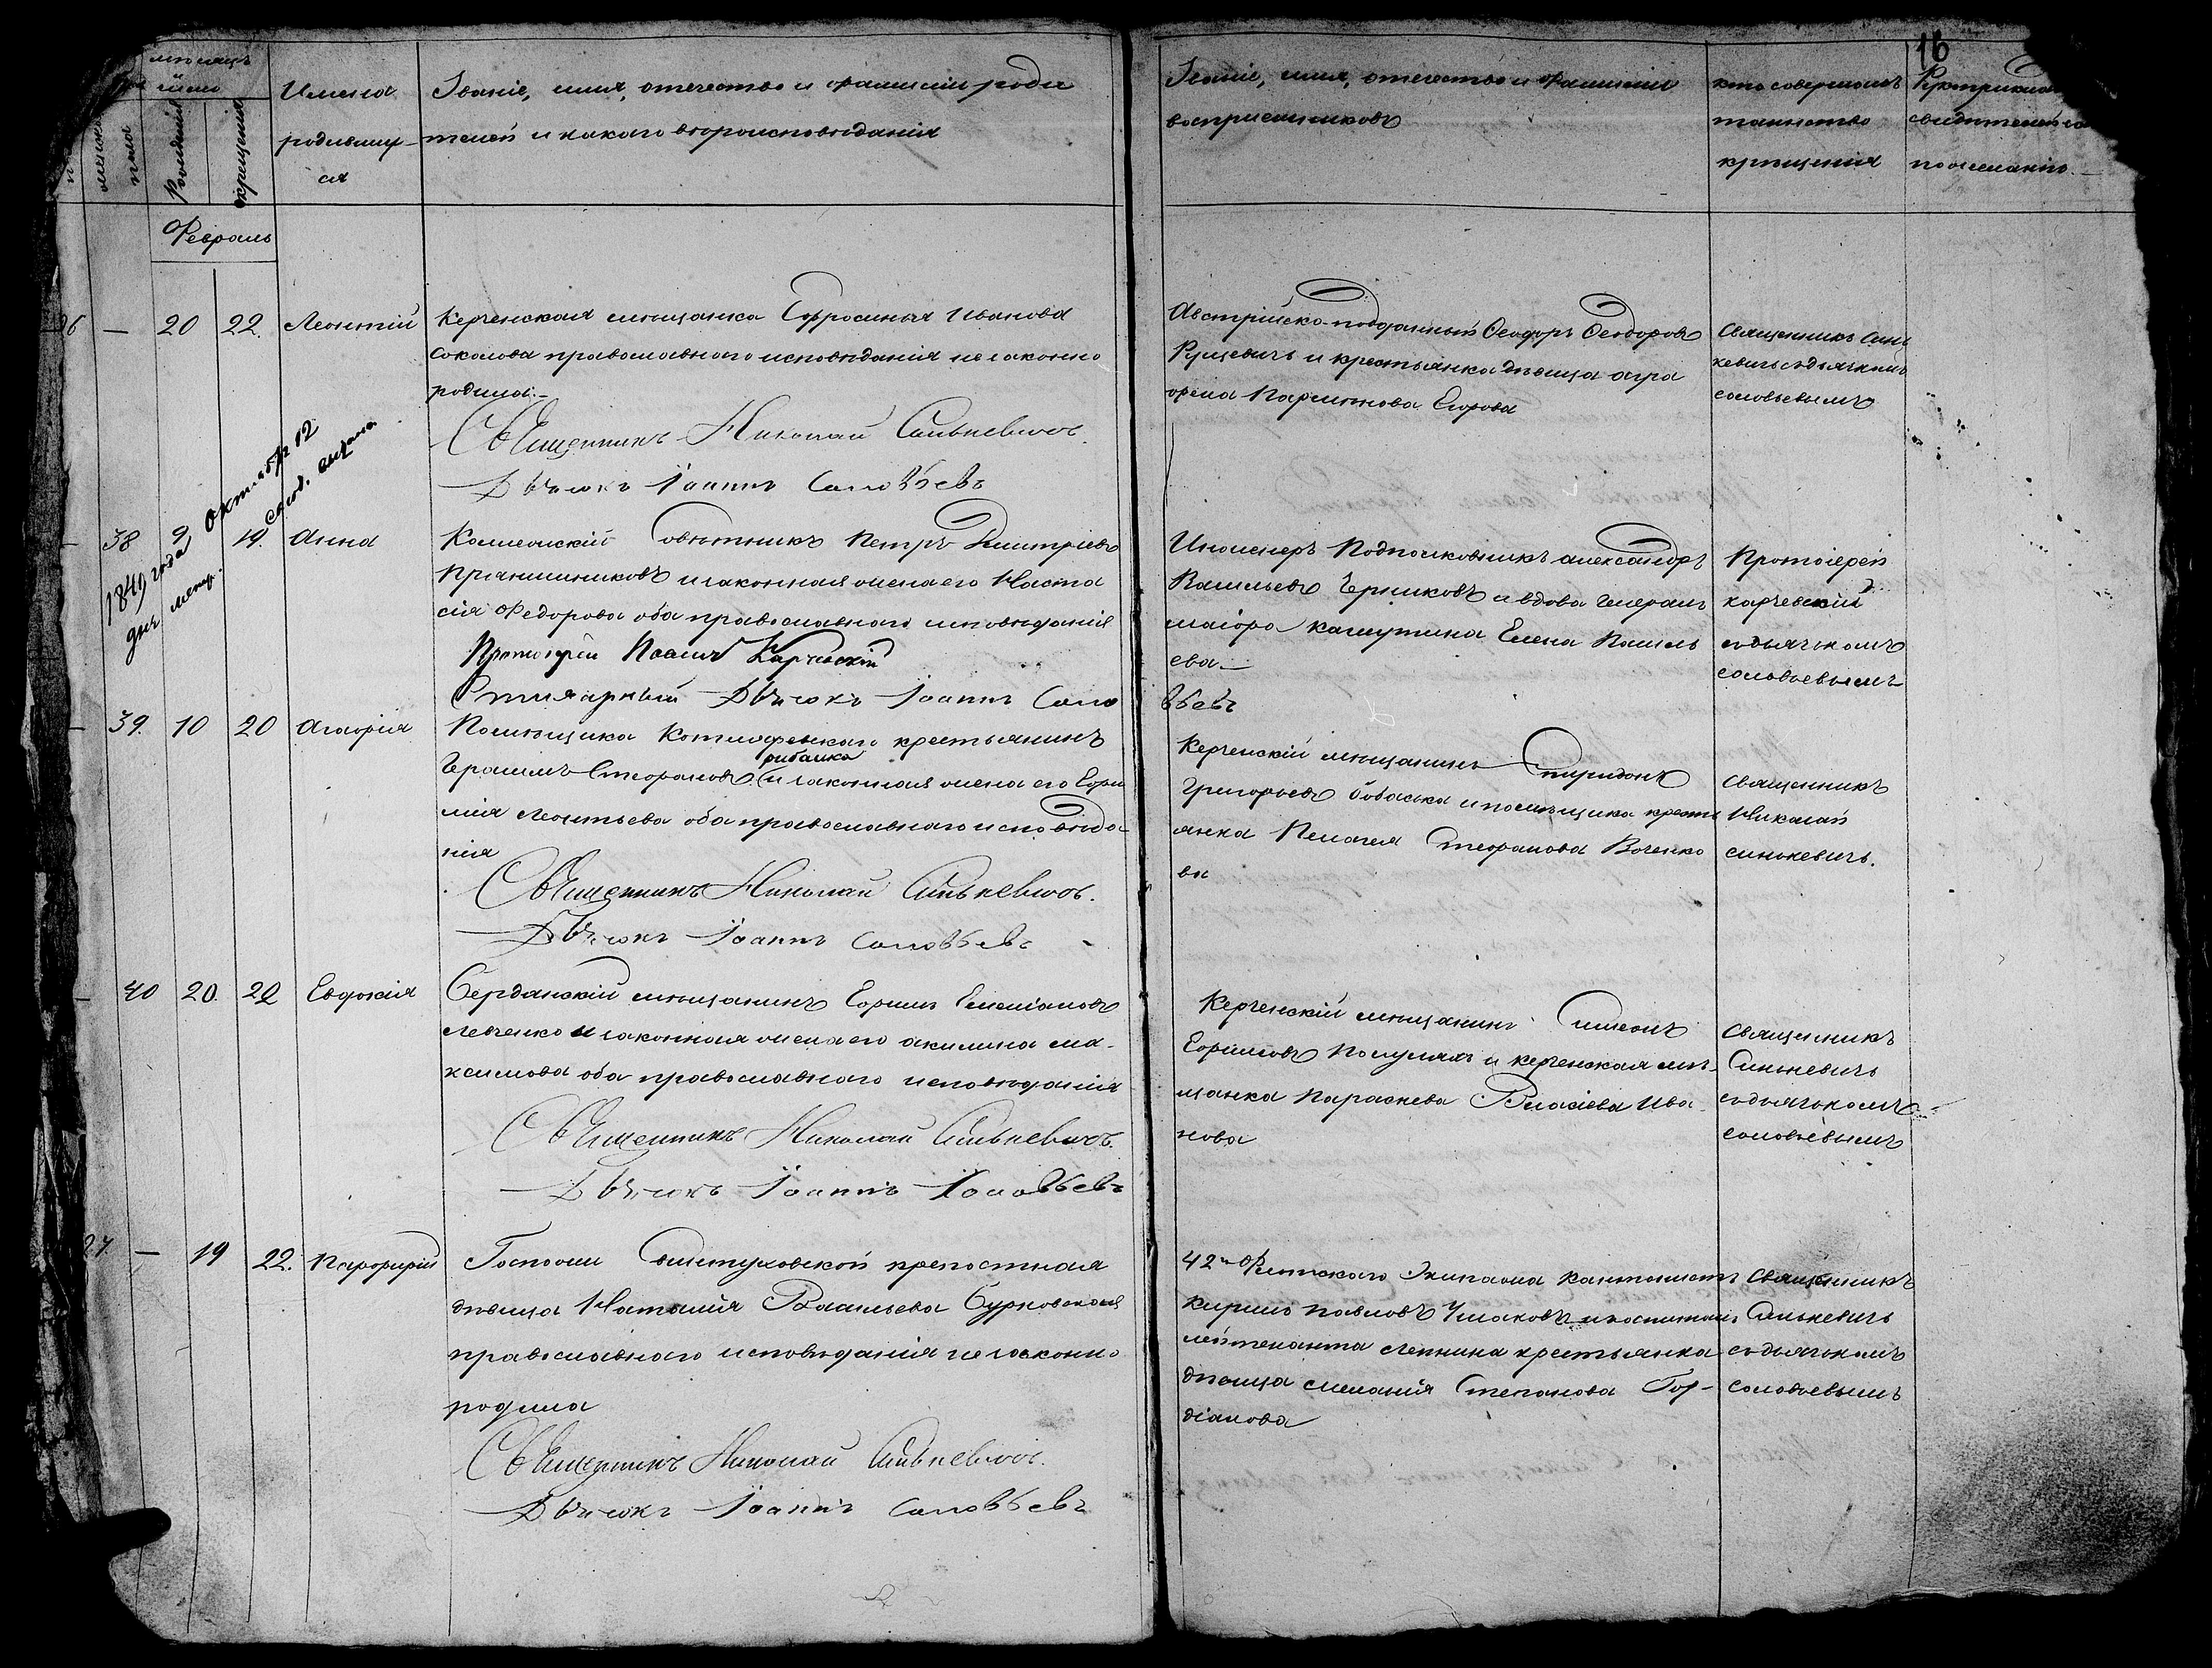 16
мѣсяцъ
и число
рожденія
крещенія
Имена
родившух-
ся
Званіе, имя, отечество и фамиліи роди
телей и какого вѣроисповѣданія
Званіе, имя, отечество и фамиліи
воспріемниковъ
кто совершалъ
таинство
крещенія
свидѣтелей
по желанію.
Февраль
— 20 22. Леонтій
Керченская мѣщанка Ефросинья Иванова
Соколова православнаго исповѣданія незаконно
родила.
Священникъ Николай Синькевичъ.
Дьячокъ Іоаннъ Соловьевъ
Австрійско-подданный Феодоръ Феодоровъ
и крестьянка дѣвица Агра
фена Парменова Егорова
Священникъ Синь
кевичь съ дьячкомъ
Соловьевымъ
1849 года Октября 12
дня метр. свид. выдана
38 9 19. Анна
Коллежскій Совѣтникъ Петръ Дмитріевъ
Прянишниковъ и законная жена его Наста
сія Федорова оба православнаго исповѣданія
Протоіерей Іоаннъ Карчевскій
Дьячокъ Іоаннъ Соло
вьевъ
Инженеръ Подполковникъ Александръ
Васильевъ Черниковъ и вдова Генералъ
маіора Кашутина Елена Павель
ева.
Протоіерей
Карчевскій
съ дьячькомъ
Соловьевымъ
39. 10 20 Агафія
Помѣщика крестьянинъ
Герасимъ Стефановъ рибалка и законная жена его Ефи
мія Леонтьева оба православнаго исповѣда-
нія
Священникъ Николай Синькевичъ.
Дьячокъ Іоаннъ Соловьевъ
Керченскій мѣщанинъ Спиридонъ
Григорьевъ и помѣщика кресть
янка Пелагея Стефанова
ва
Священникъ
Николай
Синькевичъ.
40 20. 22 Евдокія
Бердянскій мѣщанинъ Ефимъ Емеліановъ
Левченко и законная жена его Акилина Ма-
ксимова оба православнаго исповѣданія
Священникъ Николай Синькевичъ.
Дьячокъ Іоаннъ Соловьевъ
Керченскій мѣщанинъ Симеонъ
Ефимовъ и керченская мѣ-
щанка Параскева Власіева Ива-
нова
Священникъ
Синькевичь
съ дьячькомъ
Соловьевымъ
27. — 19 22. Порфирій
Госпожи крепостная
дѣвица Наталія Васильева Бурковская
православнаго исповѣданія незаконно
родила
Священникъ Николай Синькевичъ.
Дьячокъ Іоаннъ Соловьевъ
42го Флотскаго Экипажа кантонистъ
Кирилъ Павловъ Ушаковъ и капитанъ
лейтенанта крестьянка
дѣвица Меланія Степанова Гор-
діанова
Священникъ
Синькевичь
съ дьячькомъ
Соловьевымъ